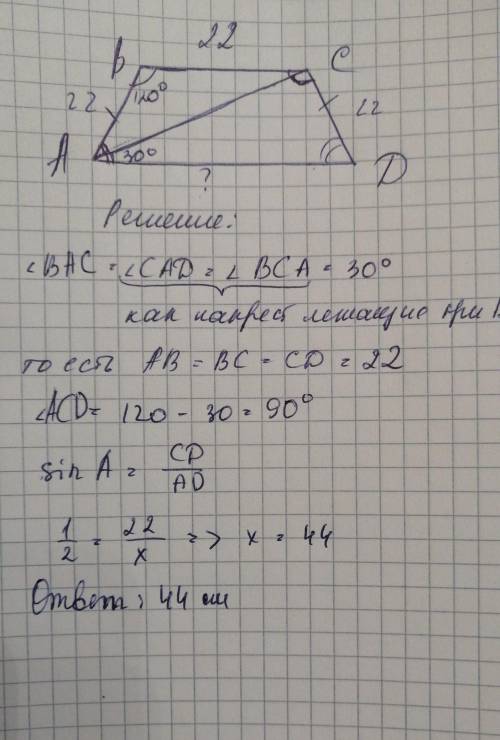 22
B C
22 120° 22
A 30° ? D
Решение:
∠BAC = ∠CAD = ∠BCA = 30°
как накрест лежащие при
то есть AB = BC = CD = 22
∠ACD = 120 - 30 = 90°
sin A = CD/AD
1/2 = 22/x => x = 44
Ответ: 44 см